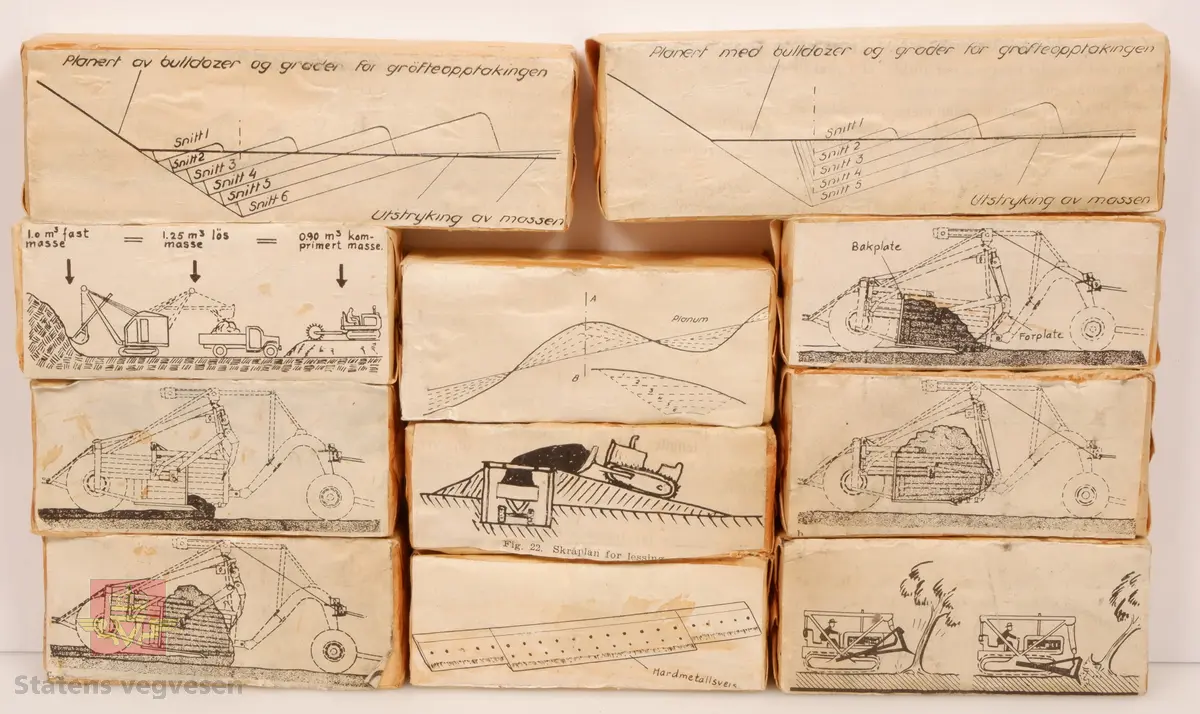 Planert av bulldozer og grader for gröfteopptakingen
Snitt 1
Snitt 2
Snitt 3
Snitt 4
Snitt 5
Snitt 6
Utstryking av massen
Planert med bulldozer og grader for gröfteopptakingen
Snitt 1
Snitt 2
Snitt 3
Snitt 4
Snitt 5
Utstryking av massen
1.0 m³ fast = 1.25 m³ lös = 0.90 m³ kom-
masse masse primert masse.
A
Planum
B
Bakplate
Forplate
Fig. 22. Skråplan for lessing
Hardmetallsveis
Statens vegvesen